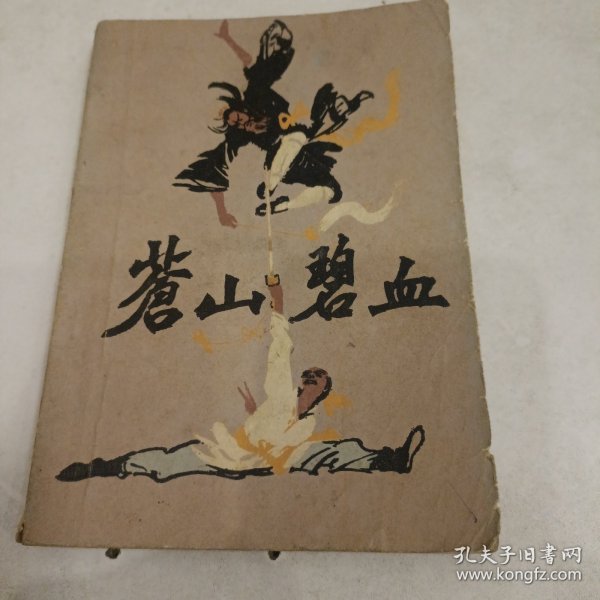 蒼山碧血
孔夫子旧书网
www.kongfz.com